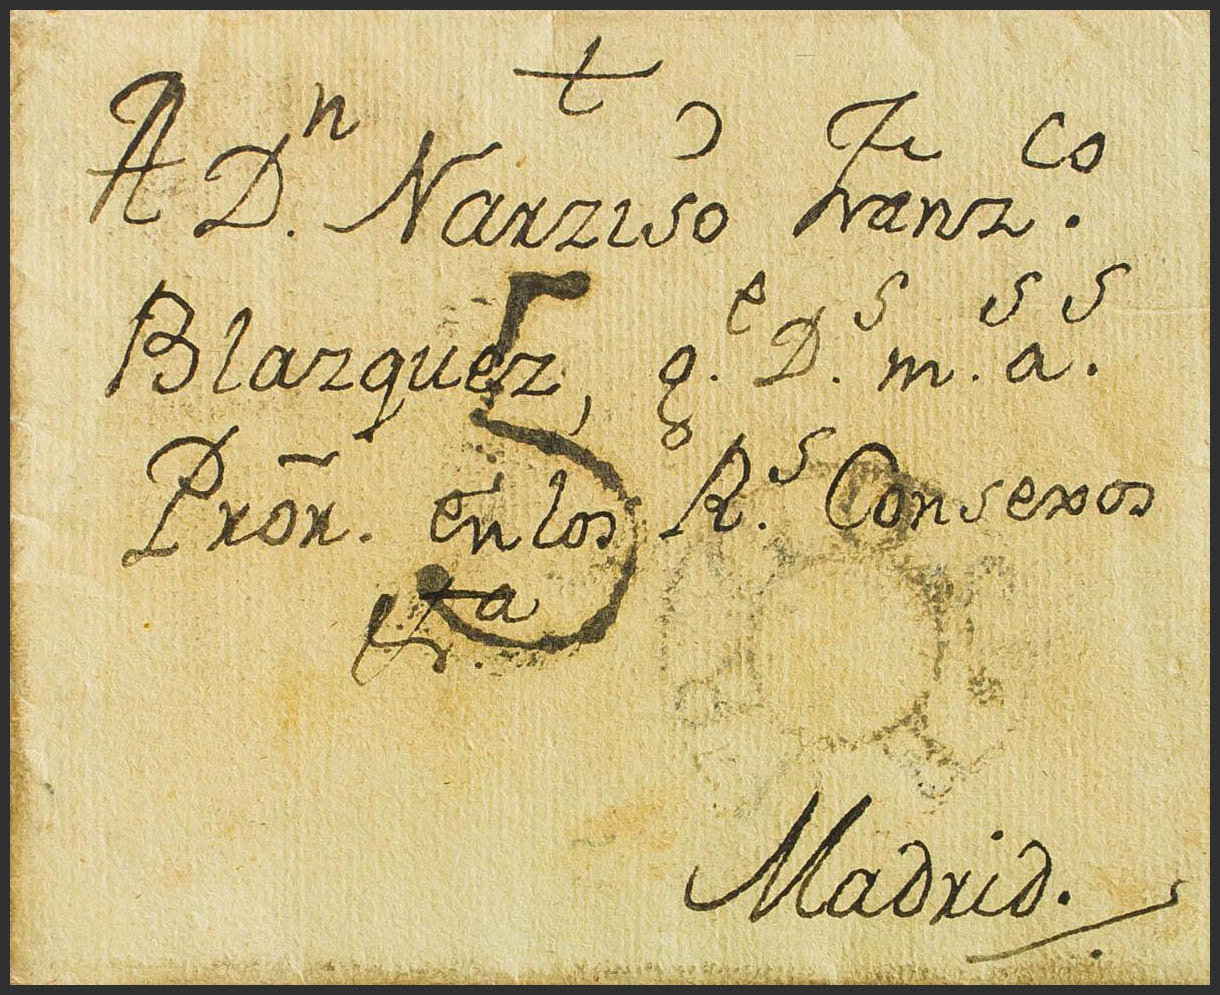 †
A D.ⁿ Narziso Franz.ᶜᵒ
Blazquez, q.ᵉ D.ˢ m.ˢ a.ˢ
Prõr. en los R.ˢ Consexos
&.ᵗᵃ
5
Madrid.